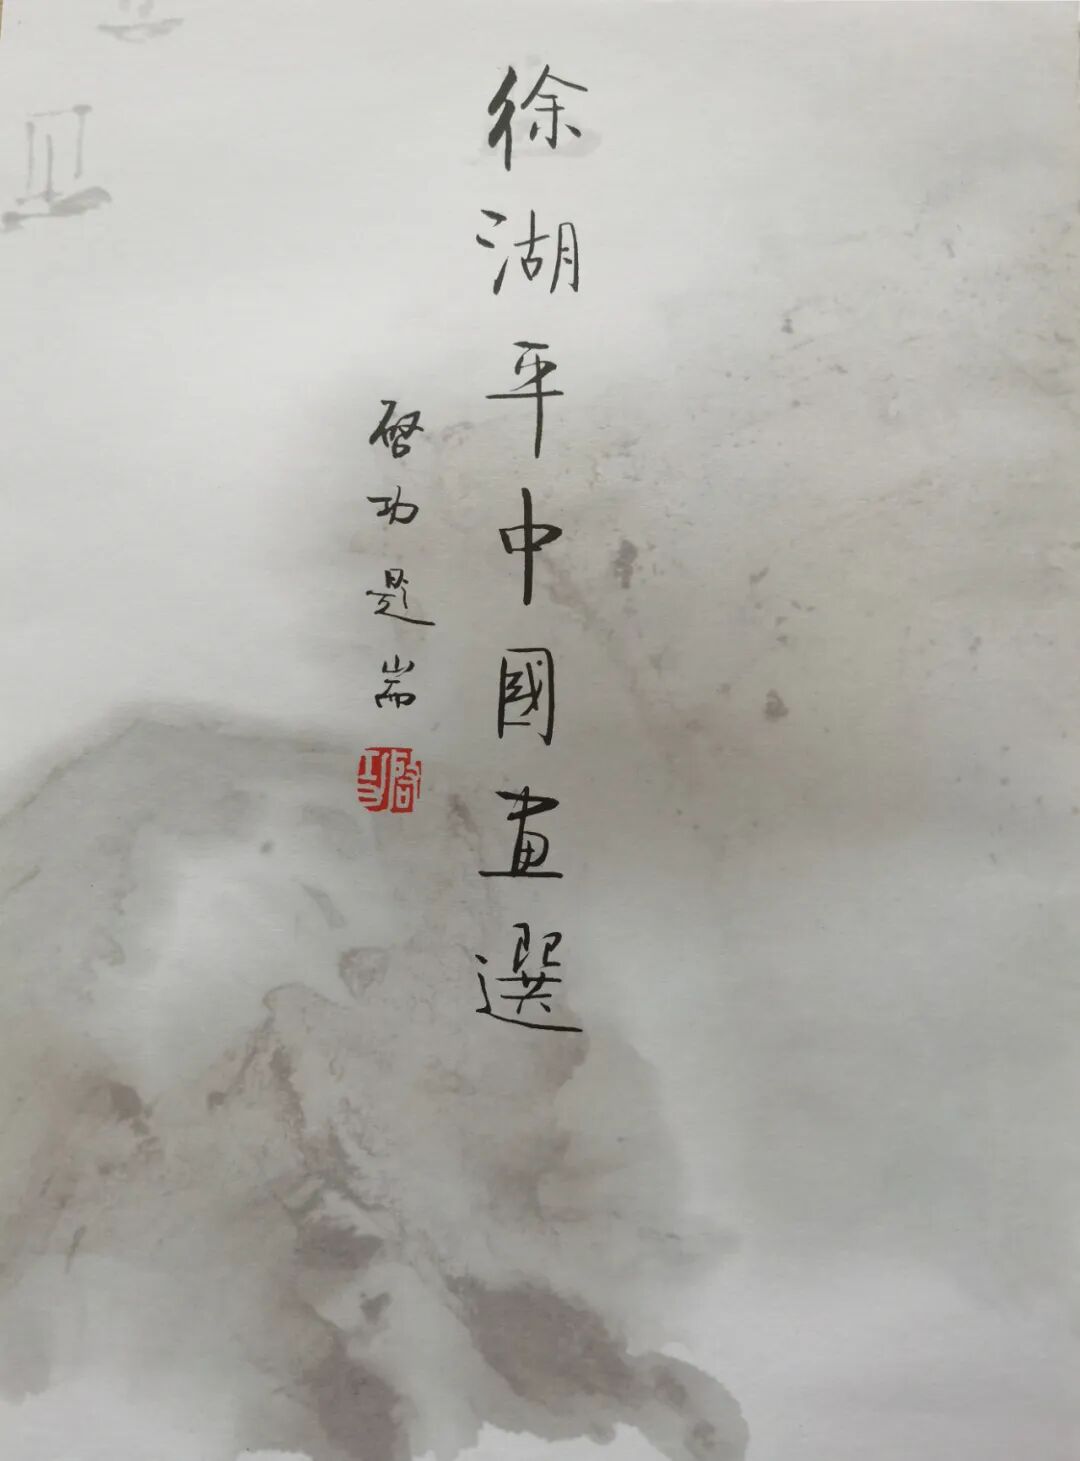 徐湖平中國畫選
啓功題耑
啓功